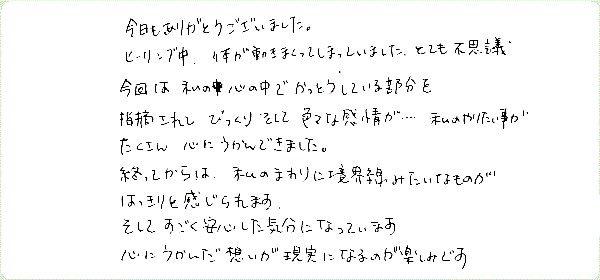 今日もありがとうございました。
ヒーリング中、体が動きまくってしまっていました、とても不思議
今回は 私の中心の中でかっとうしている部分を
指摘されし びっくり そして 色々な感情が…… 私のやりたい事が
たくさん 心にうかんできました。
終ってからは、私のまわりに境界線みたいなものが
はっきりと感じられます、
そして すごく安心した気分になっています
心にうかんだ想いが現実になるのが楽しみです